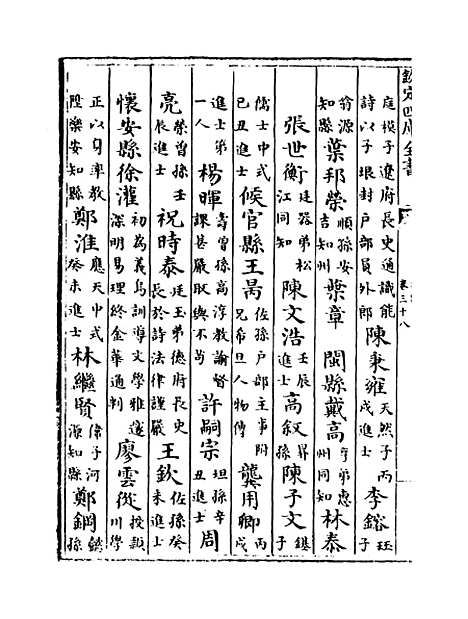 欽定四庫全書
卷三十八
庭模子遼府長史通識能詩以子垠封戶部員外郎 陳秉雍 天然子丙戌進士 李鎔 珏子
翁源知縣 葉邦榮 順孫安吉知州 葉章 閩縣戴高 亨弟惠州同知 林泰
張世衡 廷器弟松江同知 陳文浩 壬辰進士 高叙 昇孫 陳子文 鎡子
儒士中式己丑進士 候官縣王昺 佐孫戶部主事附兄希旦人物傳 龔用卿 丙戌
進士第一人 楊暉 壽曾孫高淳教諭督課甚嚴取與不苟 許嗣宗 坦孫辛丑進士 周
亮 榮曾孫壬辰進士 祝時泰 廷玉弟德府長史長於詩法律謹嚴 王欽 佐孫癸未進士
懷安縣徐灌 初為義烏訓導文學雅邃深明易理終金華通判 廖雲從 授 川學
正以身率教陞樂安知縣 鄭淮 應天中式癸未進士 林繼賢 偉子河源知縣 鄭鋼 孫